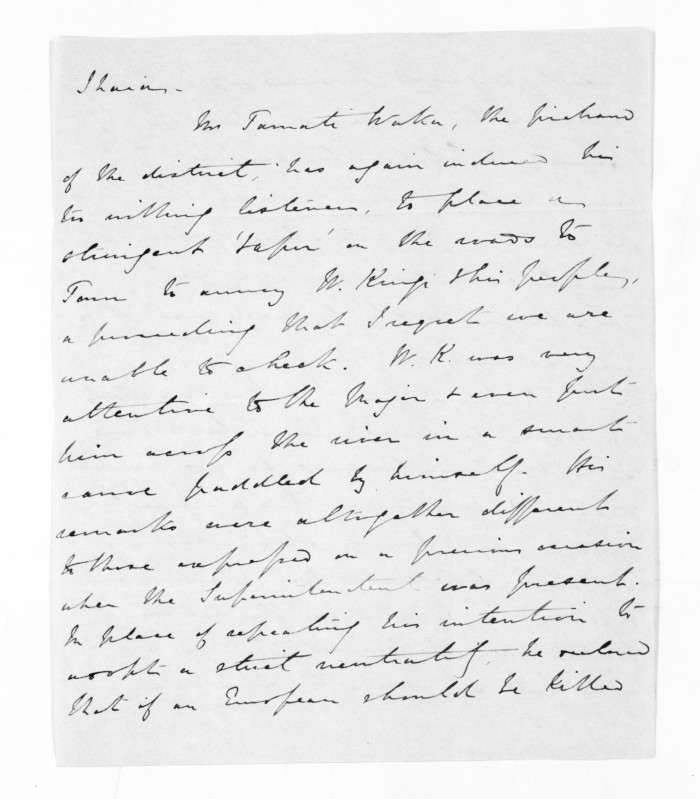 Ihaia -
Mr Tamati Waka, the firebrand
of the district, has again induced his
too willing listeners, to place a
stringent 'tapu' on the roads to
Town to annoy W. Kingi & his people,
a proceeding that I regret we are
unable to check. W. K. was very
attentive to the Major & even put
him across the river in a smart
canoe paddled by himself. His
remarks were altogether different
to those expressed on a previous occasion
when the Superintendent was present.
In place of repeating his intention to
adopt a strict neutrality, he
that if an European should be killed